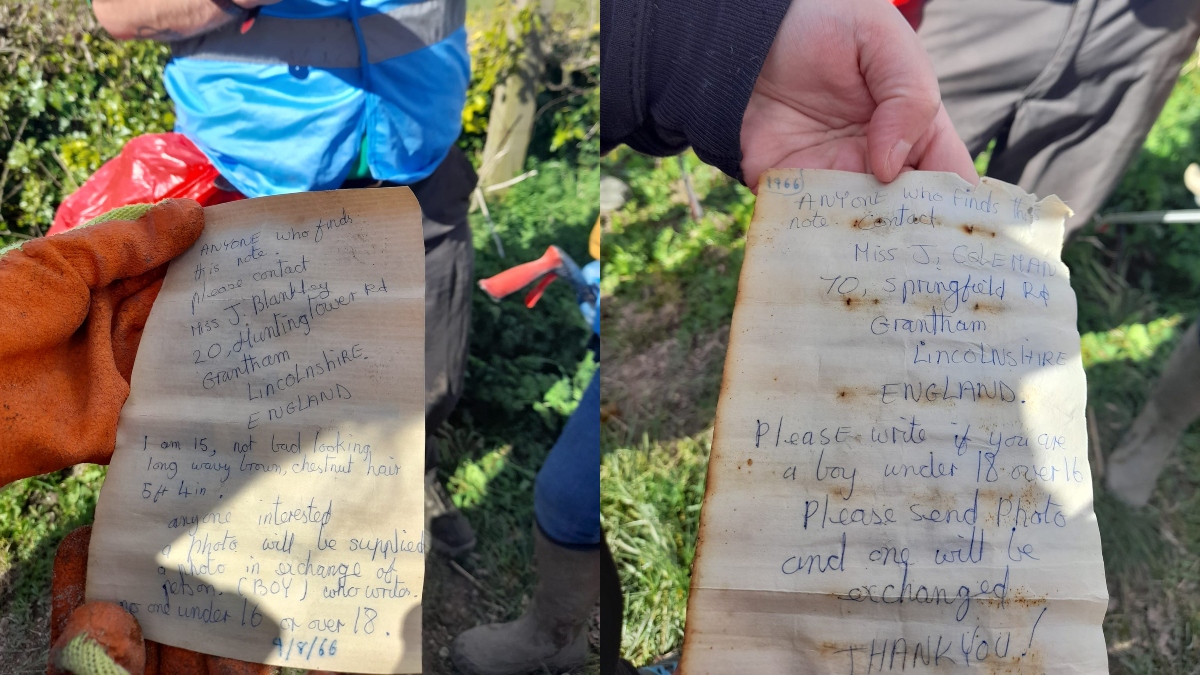 ANYONE who finds
this note.
please contact
Miss J. Blankley
20, Huntingtower Rd
Grantham
LINCOLNSHIRE.
ENGLAND
I am 15, not bad looking
long wavy brown, chestnut hair
5ft 4in.
anyone interested
a photo will be supplied
a photo in exchange of
person. (BOY) who writes.
no one under 16 or over 18.
9/8/66
1966
ANYONE who finds this
note. Contact
Miss J. COLEMAN
70, Springfield Rd
Grantham
LINCOLNSHIRE
ENGLAND.
Please write if you are
a boy under 18 over 16
Please send Photo
and one will be
exchanged
THANKYOU!